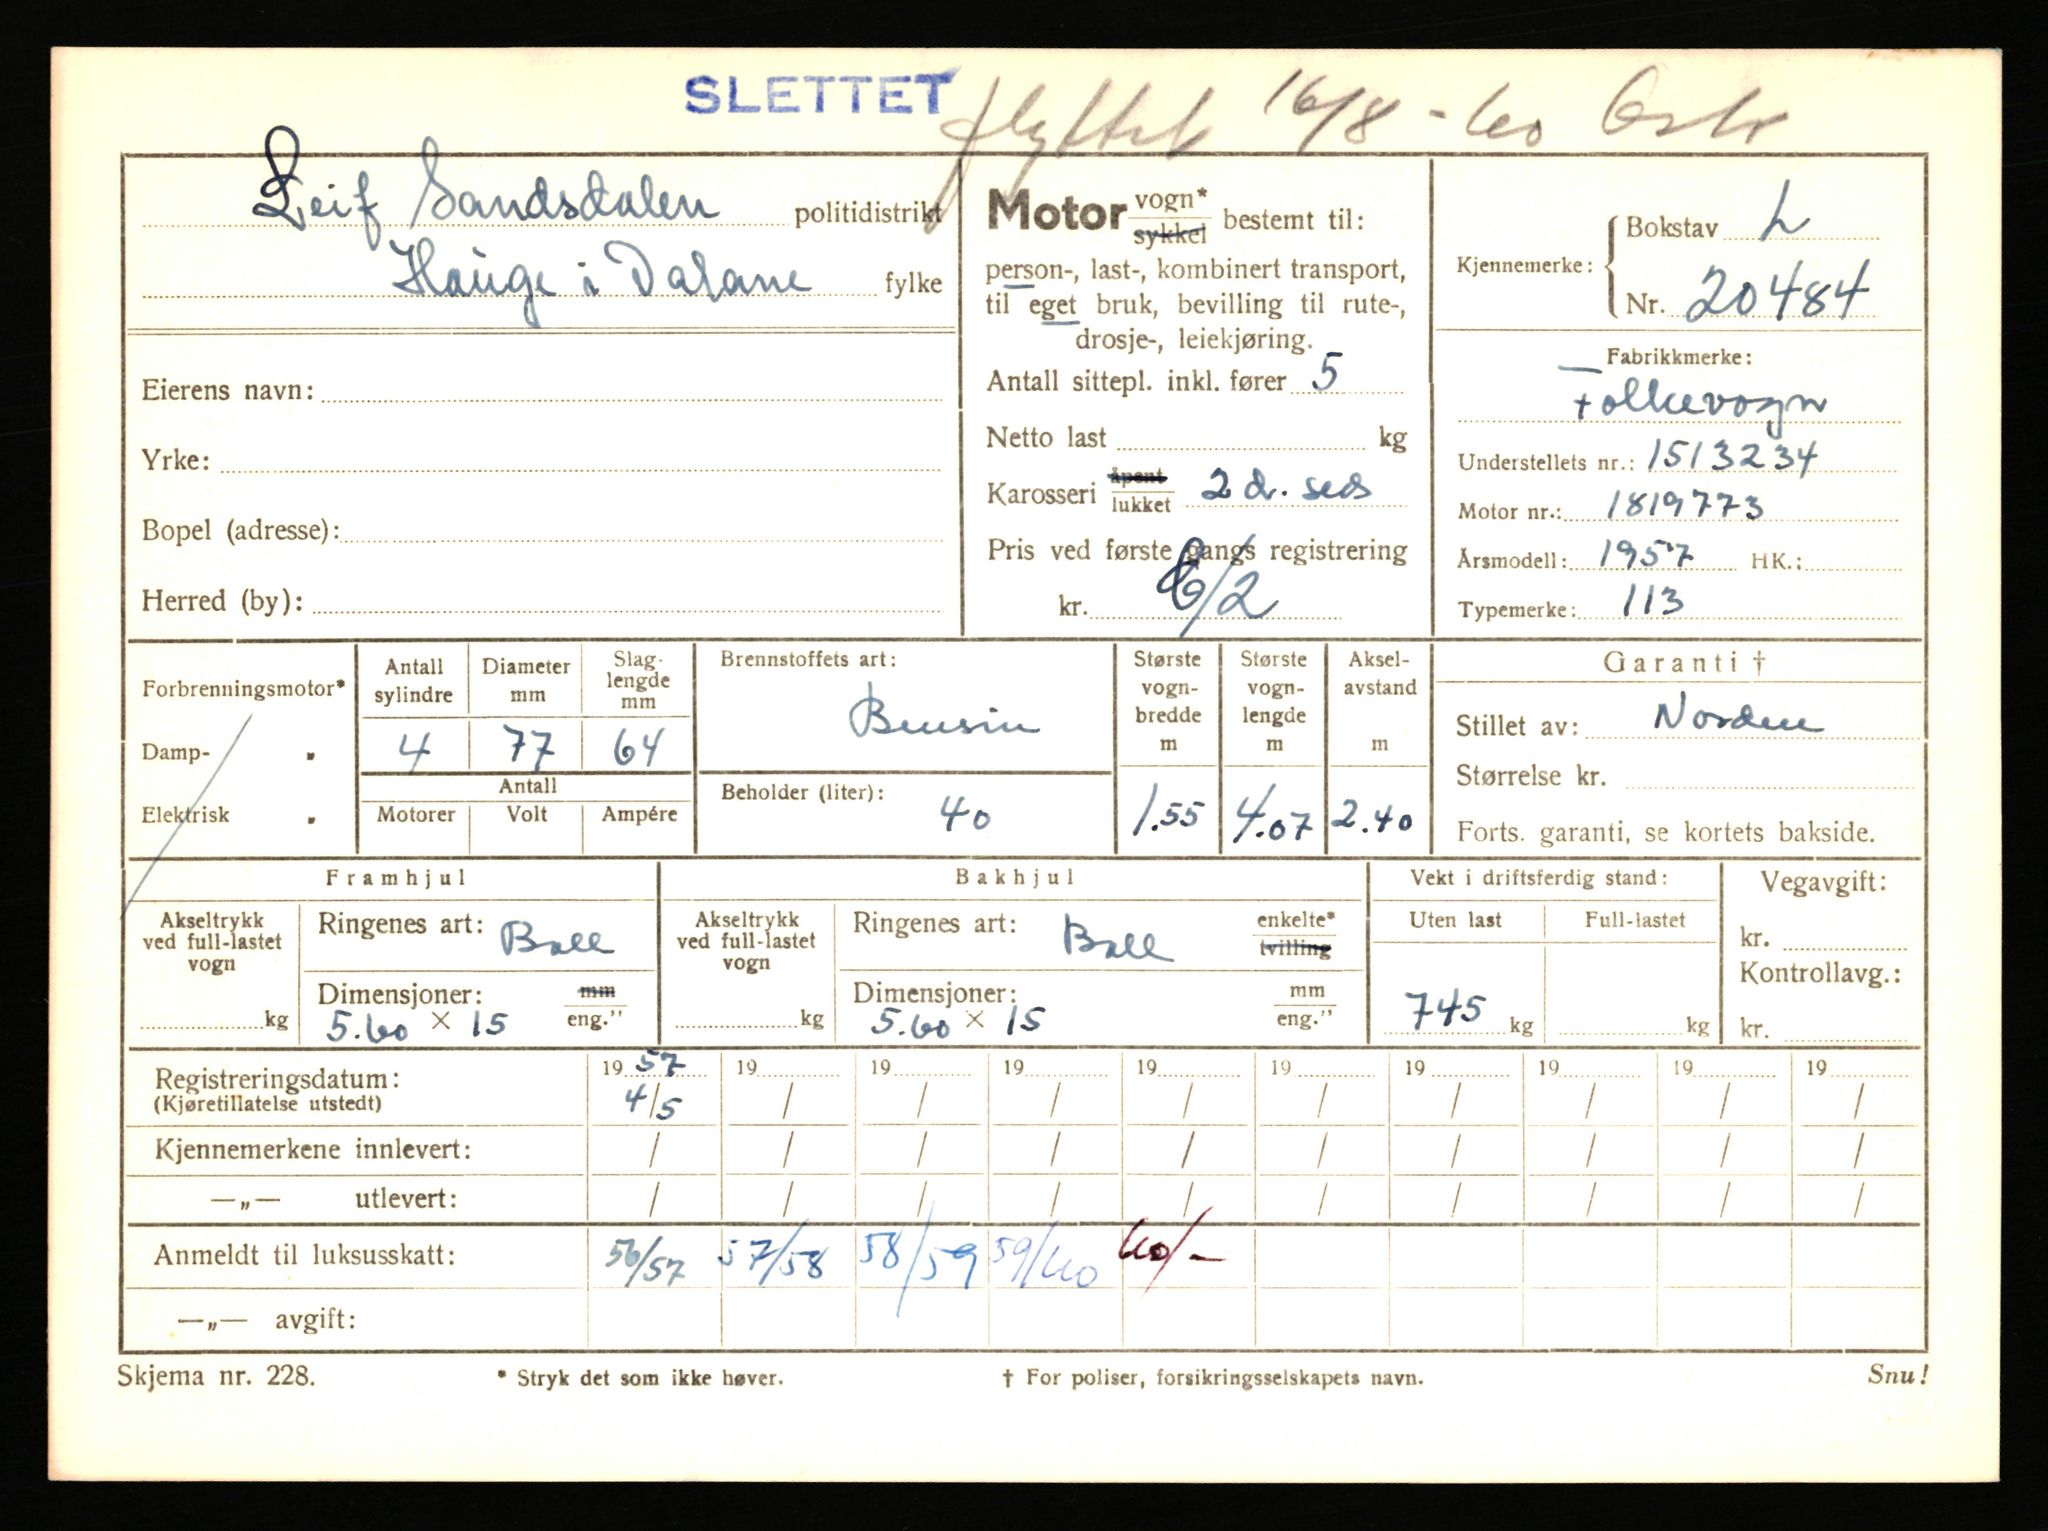 SLETTET flyttet 16/8-60 Oslo
Leif Sandsdalen politidistrikt
Hauge i Dalane fylke
Eierens navn:
Yrke:
Bopel (adresse):
Herred (by):
Motor vogn* sykkel bestemt til:
person-, last-, kombinert transport,
til eget bruk, bevilling til rute-,
drosje-, leiekjøring.
Antall sittepl. inkl. fører 5
Netto last kg
Karosseri åpent lukket 2 dr. sed
Pris ved første gangs registrering
kr. 6/2
Kjennemerke: Bokstav L
Nr. 20484
Fabrikkmerke:
Folkevogn
Understellets nr.: 1513234
Motor nr.: 1819773
Årsmodell: 1957 HK.:
Typemerke: 113
Forbrenningsmotor*
Damp- „
Elektrisk „
Antall sylindre
4
Diameter mm
77
Slaglengde mm
64
Antall
Motorer Volt Ampére
Brennstoffets art:
Bensin
Beholder (liter):
40
Største vognbredde m
1.55
Største vognlengde m
4.07
Akselavstand m
2.40
Garanti †
Stillet av: Norden
Størrelse kr.
Forts. garanti, se kortets bakside.
Framhjul
Akseltrykk ved full-lastet vogn
kg
Ringenes art: Ball
Dimensjoner: mm
5.60 × 15 eng."
Bakhjul
Akseltrykk ved full-lastet vogn
kg
Ringenes art: Ball enkelte* tvilling
Dimensjoner: mm
5.60 × 15 eng."
Vekt i driftsferdig stand:
Uten last Full-lastet
745 kg kg
Vegavgift:
kr.
Kontrollavg.:
kr.
Registreringsdatum: 19 57 19 19 19 19 19 19 19 19 19
(Kjøretillatelse utstedt) 4/5 / / / / / / / / /
Kjennemerkene innlevert: / / / / / / / / / /
—„— utlevert: / / / / / / / / / /
Anmeldt til luksusskatt: 56/57 57/58 58/59 59/60 60/-
—„— avgift:
Skjema nr. 228. * Stryk det som ikke høver. † For poliser, forsikringsselskapets navn. Snu!